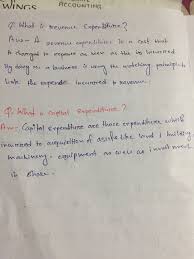 WINGS ACCOUNTING
Q. What is revenue Expenditure?
Ans:- A revenue expenditure is a cost that
is charged to expense as soon as the is incurred
By doing so a business is using the matching principle
link the expende incurred to revenue.
Q. What is Capital expenditure?
Ans: Capital expenditure are those expenditure which
incurred to acquisition of assets like land & building
machinery. equipment as well as investment
in shares.